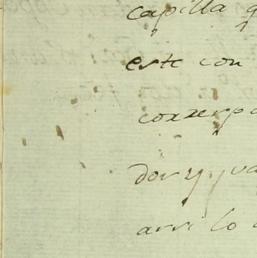 capilla q
este con
correspo
dor y, va
assi lo